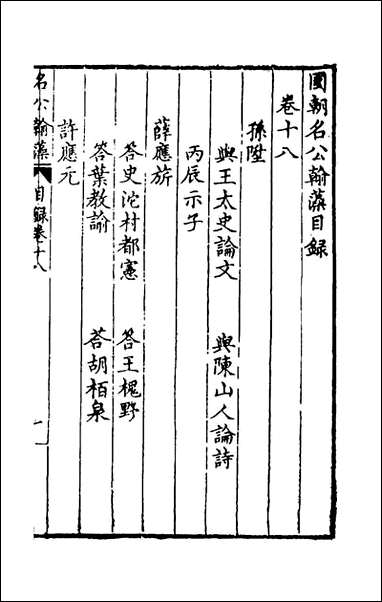 國朝名公翰藻目録
卷十八
孫陞
與王太史論文　與陳山人論詩
丙辰示子
薛應旂
答史沱村都憲　答王槐野
答葉教諭　答胡栢泉
許應元
名公翰藻　目録卷十八　一